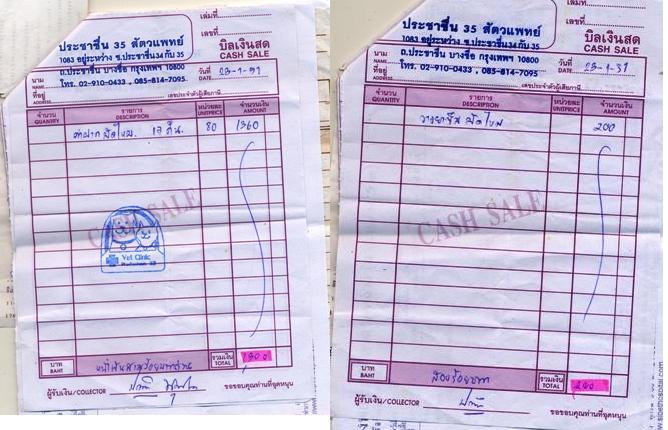 เล่มที่
เลขที่
ประชาชื่น 35 สัตวแพทย์
1083 อยู่ระหว่าง ซ.ประชาชื่น34 กับ 35
ถ.ประชาชื่น บางซื่อ กรุงเทพฯ 10800
โทร. 02-910-0433 , 085-814-7095
บิลเงินสด
CASH SALE
นาม
NAME
วันที่
DATE
23-1-31
ที่อยู่
ADDRESS
เลขประจำตัวผู้เสียภาษี
จำนวน
QUANTITY
รายการ
DESCRIPTION
หน่วยละ
UNITPRICE
จำนวนเงิน
AMOUNT
ค่าฝาก 17 คืน 80 1360
CASH SALE
Vet Clinic
บาท
BAHT
รวมเงิน
TOTAL
ผู้รับเงิน/COLLECTOR
ขอขอบคุณท่านที่อุดหนุน
เล่มที่
เลขที่
ประชาชื่น 35 สัตวแพทย์
1083 อยู่ระหว่าง ซ.ประชาชื่น34 กับ 35
ถ.ประชาชื่น บางซื่อ กรุงเทพฯ 10800
โทร. 02-910-0433 , 085-814-7095
บิลเงินสด
CASH SALE
นาม
NAME
วันที่
DATE
23-1-31
ที่อยู่
ADDRESS
เลขประจำตัวผู้เสียภาษี
จำนวน
QUANTITY
รายการ
DESCRIPTION
หน่วยละ
UNITPRICE
จำนวนเงิน
AMOUNT
200
CASH SALE
บาท
BAHT
สองร้อยบาท
รวมเงิน
TOTAL
200
ผู้รับเงิน/COLLECTOR
ขอขอบคุณท่านที่อุดหนุน